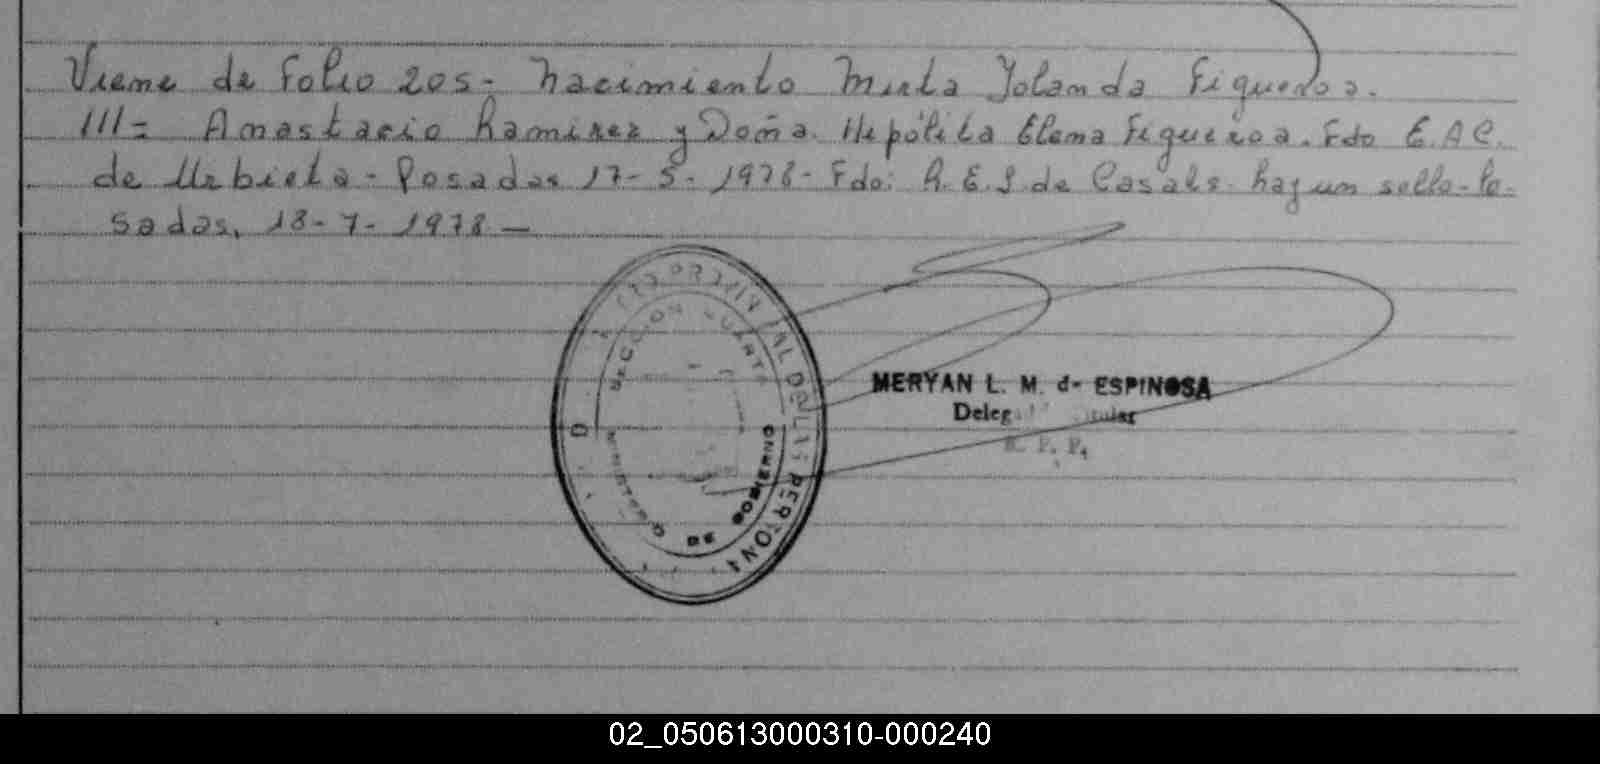 Viene de Folio 205- Nacimiento Mirta Yolanda Figueroa.
///= Anastacio Ramirez y Doña. Hepólita Elena Figueroa. Fdo E.A C.
de Urbieta- Posadas 17-5-1978- Fdo: R.E.S. de Casals- hay un sello-Po-
sadas, 18-7-1978—
SECCION CUARTA
MINISTERIO DE GOBIERNO
MERYAN L. M. de ESPINOSA
R. P. P.
02_050613000310-000240